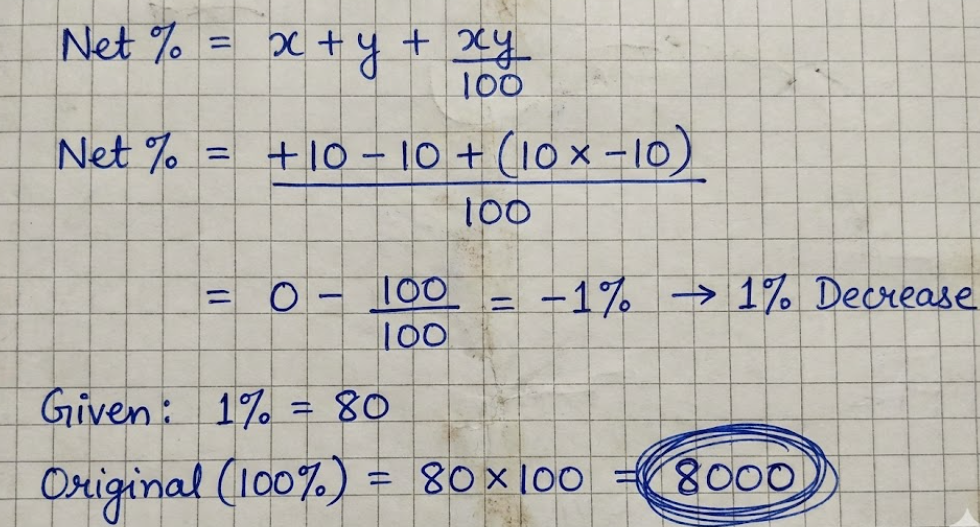 Net % = x + y + xy/100
Net % = +10 - 10 + (10 × -10)/100
= 0 - 100/100 = -1% → 1% Decrease
Given: 1% = 80
Original (100%) = 80 × 100 = 8000